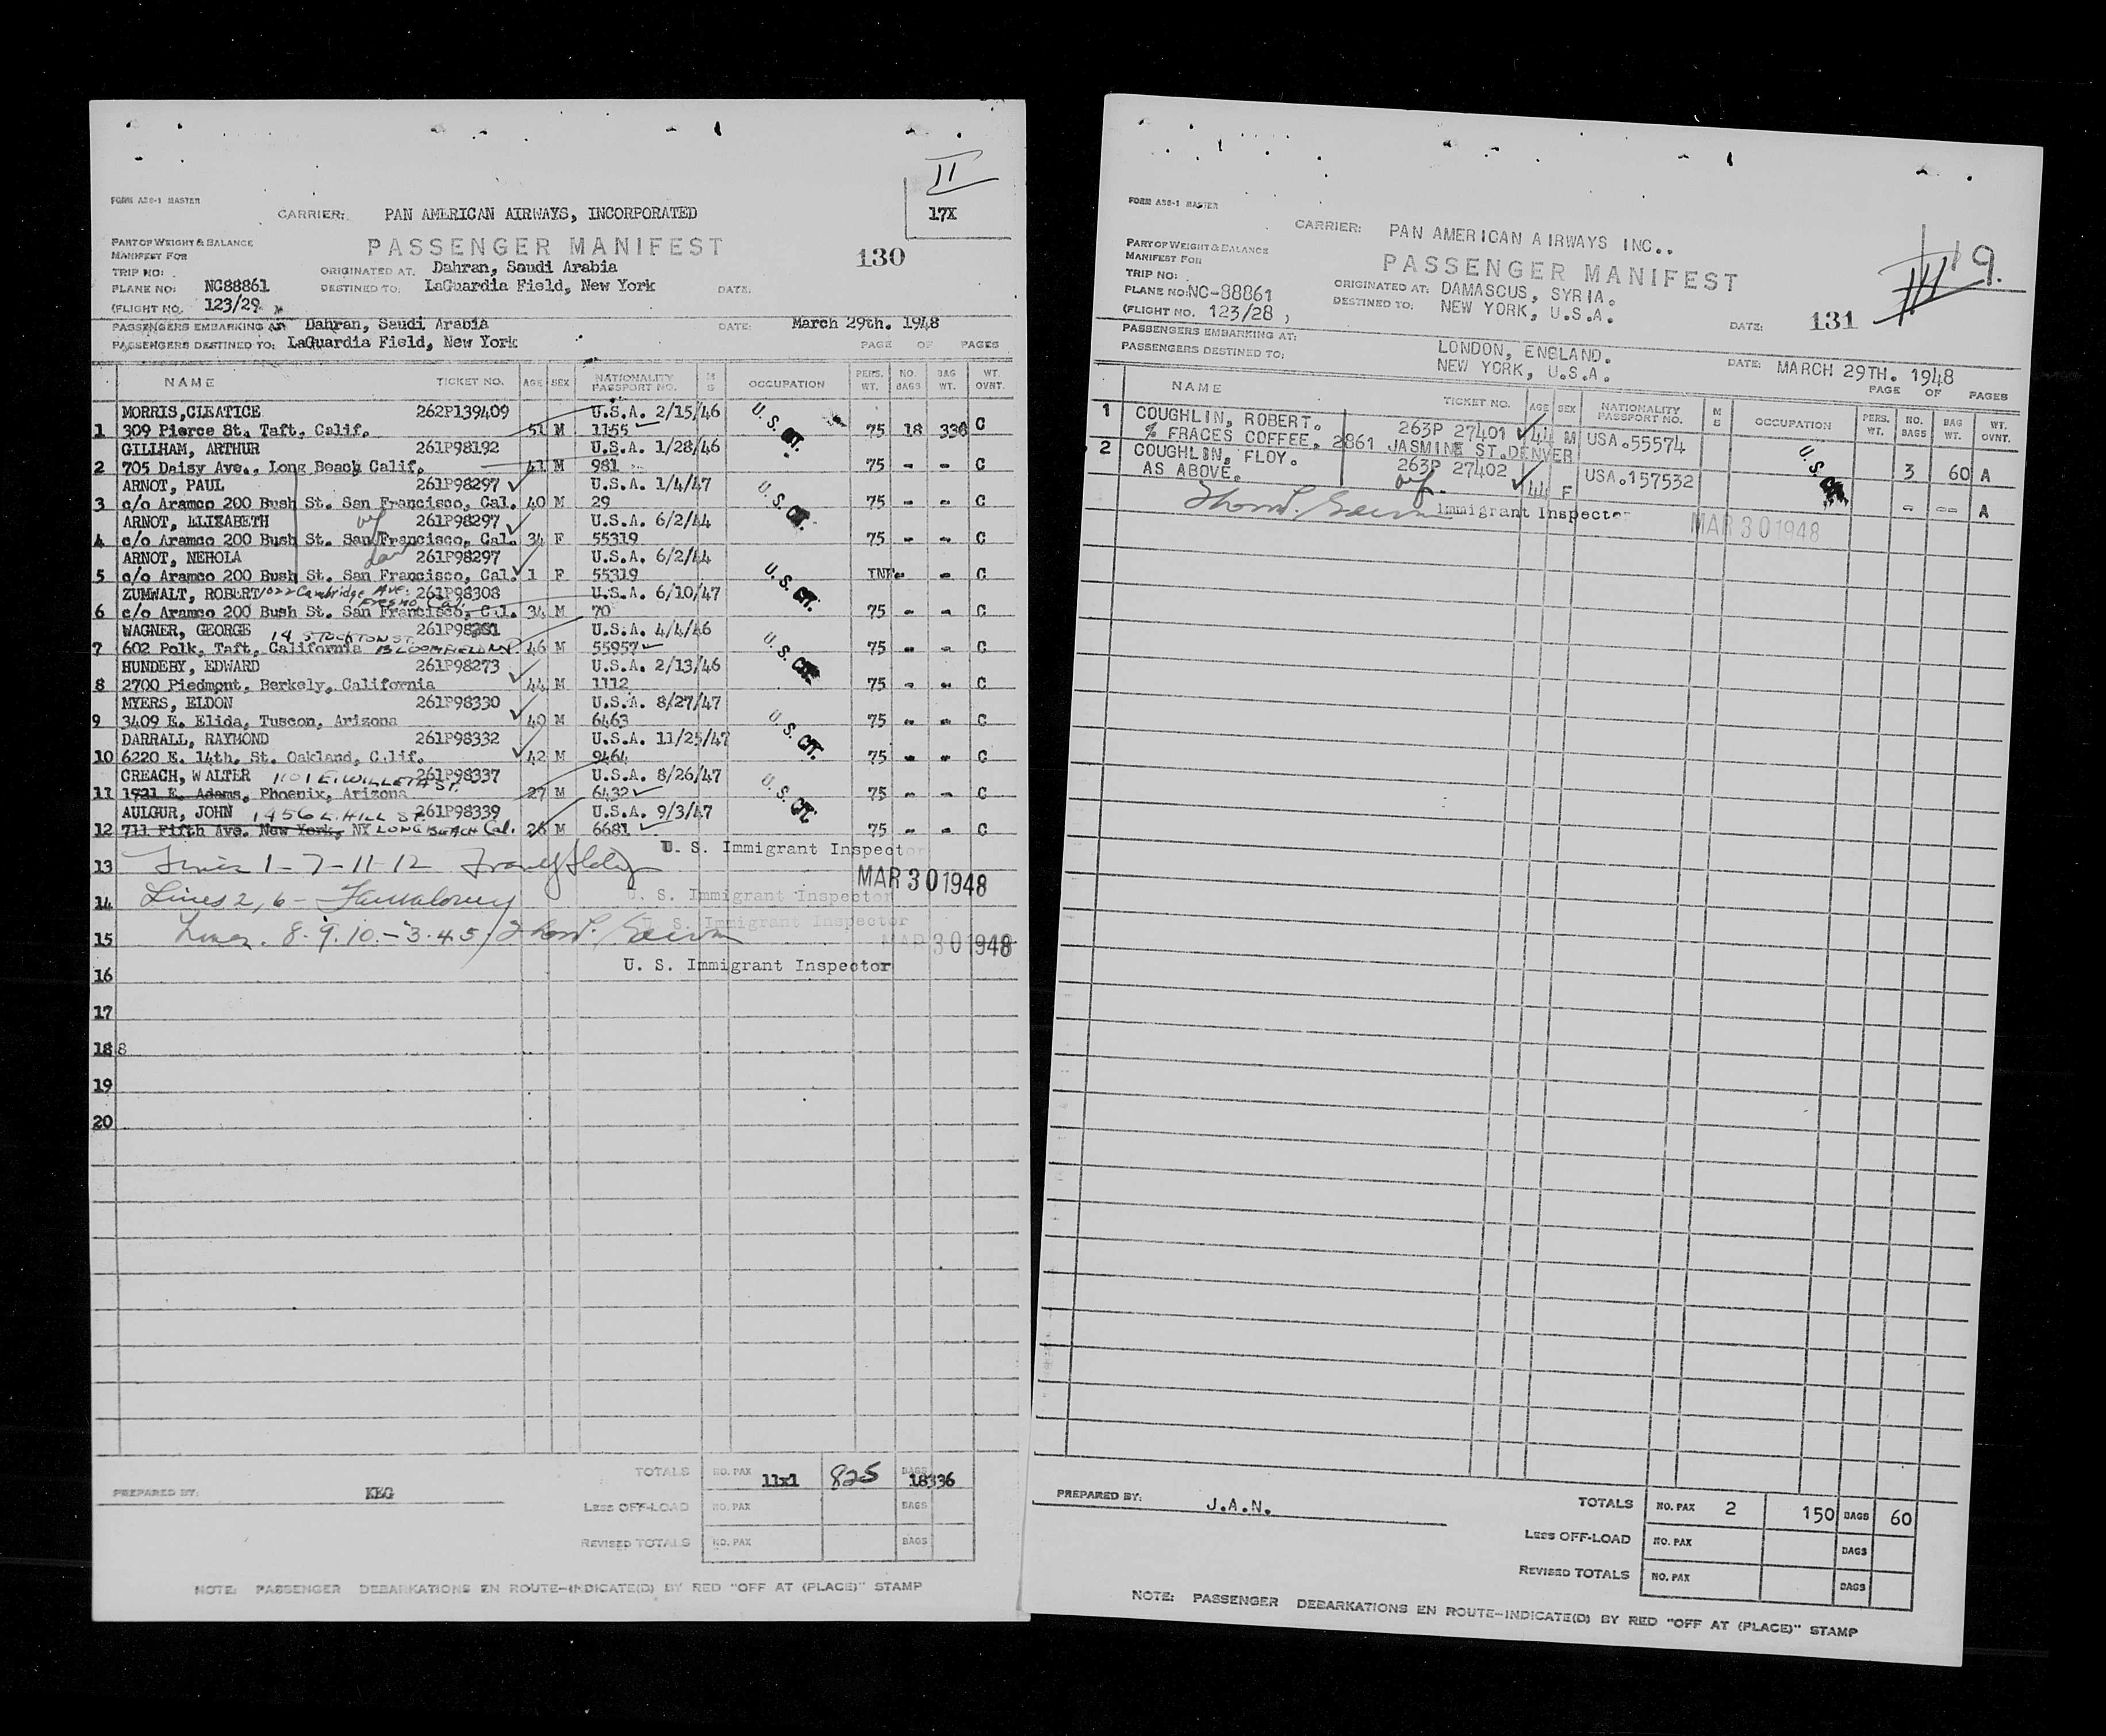 II
17X
FORM A20-1 MASTER
CARRIER: PAN AMERICAN AIRWAYS, INCORPORATED
PASSENGER MANIFEST
130
PART OF WEIGHT & BALANCE
MANIFEST FOR
TRIP NO:
ORIGINATED AT. Dahran, Saudi Arabia
PLANE NO: NC88861
DESTINED TO: LaGuardia Field, New York DATE:
(FLIGHT NO. 123/29
PASSENGERS EMBARKING AT Dahran, Saudi Arabia DATE: March 29th. 1948
PASSENGERS DESTINED TO: LaGuardia Field, New York PAGE OF PAGES
NAME TICKET NO. AGE SEX NATIONALITY PASSPORT NO. M S OCCUPATION PERS. WT. NO. BAGS BAG WT. WT. OVNT.
MORRIS,CLEATICE 262P139409 U.S.A. 2/15/46
1 309 Pierce St. Taft, Calif. 51 M 1155 U.S. CIT. 75 18 336 C
GILLHAM, ARTHUR 261P98192 U.S.A. 1/28/46
2 705 Daisy Ave., Long Beach Calif. 41 M 981 75 - - C
ARNOT, PAUL 261P98297 U.S.A. 1/4/47
3 c/o Aramco 200 Bush St. San Francisco, Cal. 40 M 29 U.S. CIT. 75 - - C
ARNOT, ELIZABETH wf 261P98297 U.S.A. 6/2/44
4 c/o Aramco 200 Bush St. San Francisco, Cal. 34 F 55319 75 - - C
ARNOT, NEHOLA dau 261P98297 U.S.A. 6/2/44
5 c/o Aramco 200 Bush St. San Francisco, Cal. 1 F 55319 U.S. CIT. INF - - C
ZUMWALT, ROBERT 1022 Cambridge Ave. Fresno Cal. 261P98308 U.S.A. 6/10/47
6 c/o Aramco 200 Bush St. San Francisco, Cal. 34 M 70 75 - - C
WAGNER, GEORGE 14 STOCKTON ST. U.S.A. 4/4/46
7 602 Polk, Taft, California BLOOMFIELD NJ 46 M 55957 U.S. CIT. 75 - - C
HUNDEBY, EDWARD 261P98273 U.S.A. 2/13/46
8 2700 Piedmont, Berkely, California 44 M 1112 75 - - C
MYERS, ELDON 261P98330 U.S.A. 8/27/47
9 3409 E. Elida, Tuscon, Arizona 40 M 6463 U.S. CIT. 75 - - C
DARRALL, RAYMOND 261P98332 U.S.A. 11/25/47
10 6220 E. 14th. St. Oakland, Calif. 42 M 9464 75 - - C
CREACH, WALTER 1101 E. WILLETTA ST. 261P98337 U.S.A. 8/26/47
11 1921 E. Adams, Phoenix, Arizona 27 M 6432 U.S. CIT. 75 - - C
AULGUR, JOHN 1456 E. HILL ST. 261P98339 U.S.A. 9/3/47
12 711 Fifth Ave. New York, NY LONG BEACH Cal. 26 M 6681 75 - - C
U. S. Immigrant Inspector
13 Lines 1-7-11-12
MAR 30 1948
U. S. Immigrant Inspector
14 Lines 2, 6 -
U. S. Immigrant Inspector
15 Lines. 8.9.10.-3.4.5
MAR 30 1948
U. S. Immigrant Inspector
16
17
18 8
19
20
TOTALS NO. PAX 11x1 825 BAGS 18336
PREPARED BY: KEG
LESS OFF-LOAD NO. PAX BAGS
REVISED TOTALS NO. PAX BAGS
NOTE: PASSENGER DEBARKATIONS EN ROUTE-INDICATE(D) BY RED "OFF AT (PLACE)" STAMP
FORM A20-1 MASTER
CARRIER: PAN AMERICAN AIRWAYS INC..
PASSENGER MANIFEST
III 19.
PART OF WEIGHT & BALANCE
MANIFEST FOR
TRIP NO:
ORIGINATED AT: DAMASCUS, SYRIA.
PLANE NO: NC-88861
DESTINED TO. NEW YORK, U.S.A. DATE: 131
(FLIGHT NO. 123/28 )
PASSENGERS EMBARKING AT: LONDON, ENGLAND. DATE: MARCH 29TH. 1948
PASSENGERS DESTINED TO: NEW YORK, U.S.A. PAGE OF PAGES
NAME TICKET NO. AGE SEX NATIONALITY PASSPORT NO. M S OCCUPATION PERS. WT. NO. BAGS BAG WT. WT. OVNT.
1 COUGHLIN, ROBERT. 263P 27401 44 M USA.55574
% FRACES COFFEE, 2861 JASMINE ST.DENVER
2 COUGHLIN, FLOY. 263P 27402 USA.157532 U.S. 3 60 A
AS ABOVE. wf. 44 F - -- A
Immigrant Inspector
MAR 30 1948
PREPARED BY: J.A.N.
TOTALS NO. PAX 2 150 BAGS 60
LESS OFF-LOAD NO. PAX BAGS
REVISED TOTALS NO. PAX BAGS
NOTE: PASSENGER DEBARKATIONS EN ROUTE-INDICATE(D) BY RED "OFF AT (PLACE)" STAMP